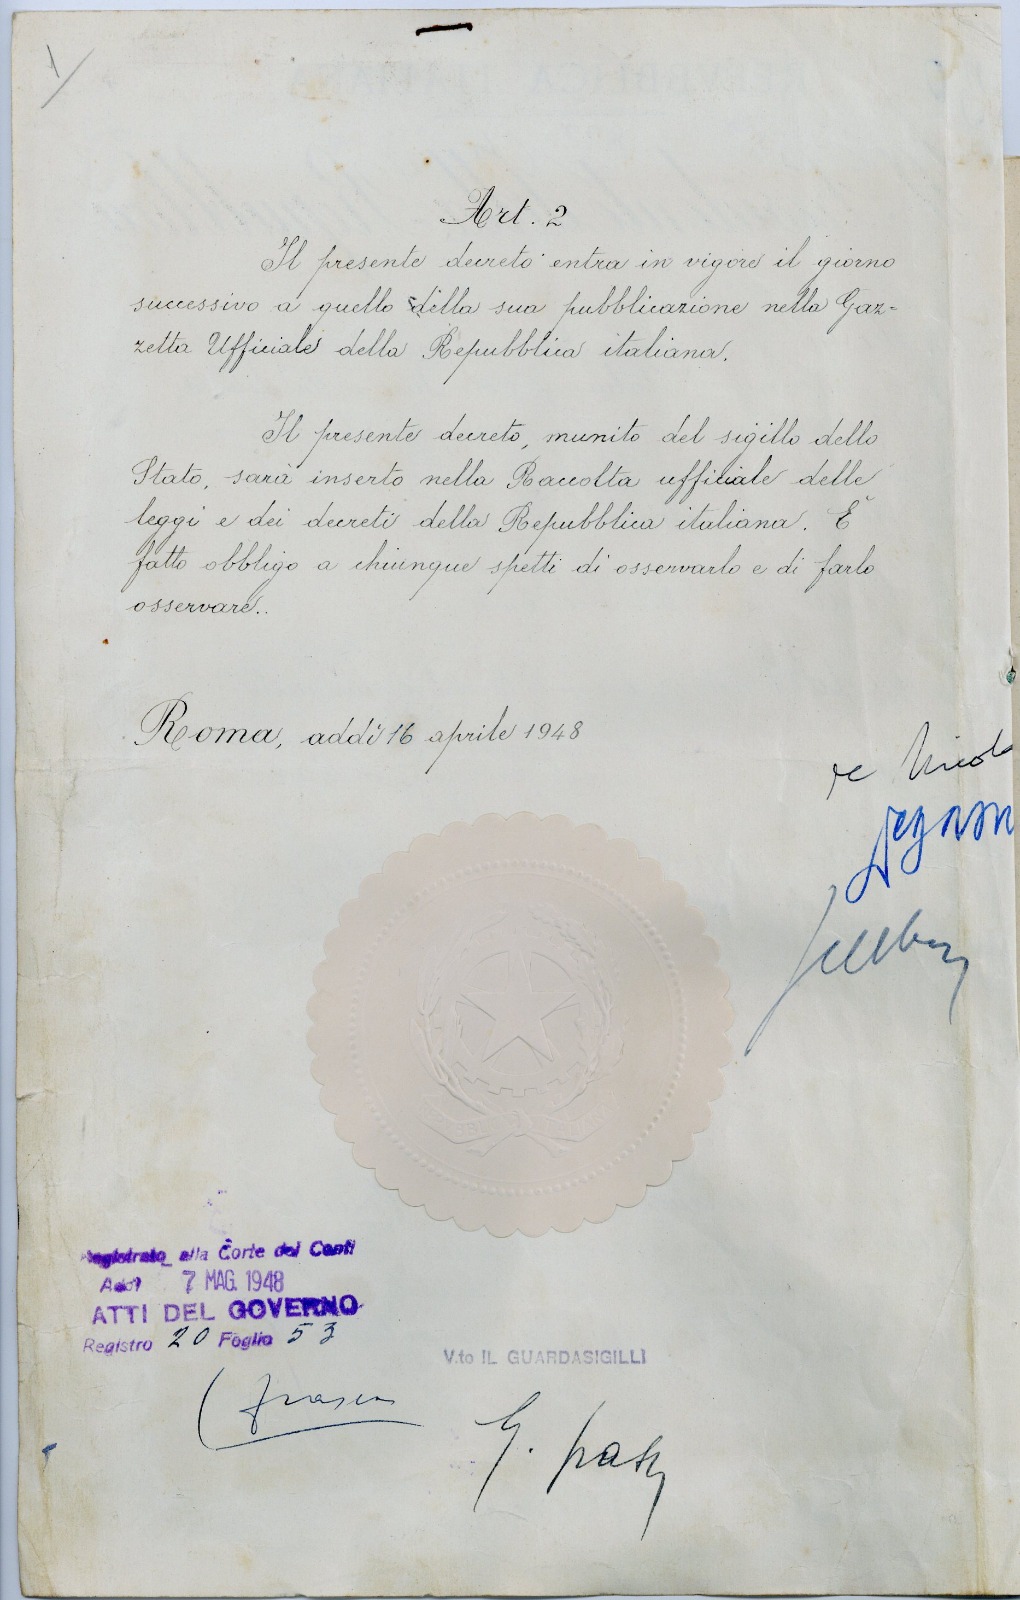 Art. 2
Il presente decreto entra in vigore il giorno
successivo a quello della sua pubblicazione nella Gaz=
zetta Ufficiale della Repubblica italiana.
Il presente decreto, munito del sigillo dello
Stato, sarà inserto nella Raccolta ufficiale delle
leggi e dei decreti della Repubblica italiana. È
fatto obbligo a chiunque spetti di osservarlo e di farlo
osservare..
Roma, addì 16 aprile 1948
de Nicola
Registrato alla Corte dei Conti
Addì 7 MAG. 1948
ATTI DEL GOVERNO
Registro 20 Foglio 53
V.to IL GUARDASIGILLI
G. Grassi